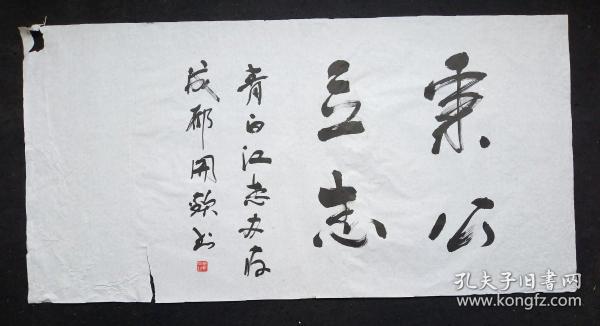 秉公
立志
青白江志办存
成都开欤书
孔夫子旧书网
www.kongfz.com